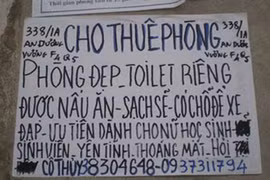 338/1A
AN DƯƠNG
VƯƠNG F4 Q5
CHO THUÊ PHÒNG
338/1A
AN DƯƠNG
VƯƠNG F4 Q5
PHÒNG ĐẸP_TOILET RIÊNG
ĐƯỢC NẤU ĂN-SẠCH SẼ-CÓ CHỖ ĐỂ XE
ĐẠP-ƯU TIÊN DÀNH CHO NỮ HỌC SINH
SINH VIÊN-YÊN TĨNH. THOÁNG MÁT-HỎI
CÔ THỦY 38304648-0937311794